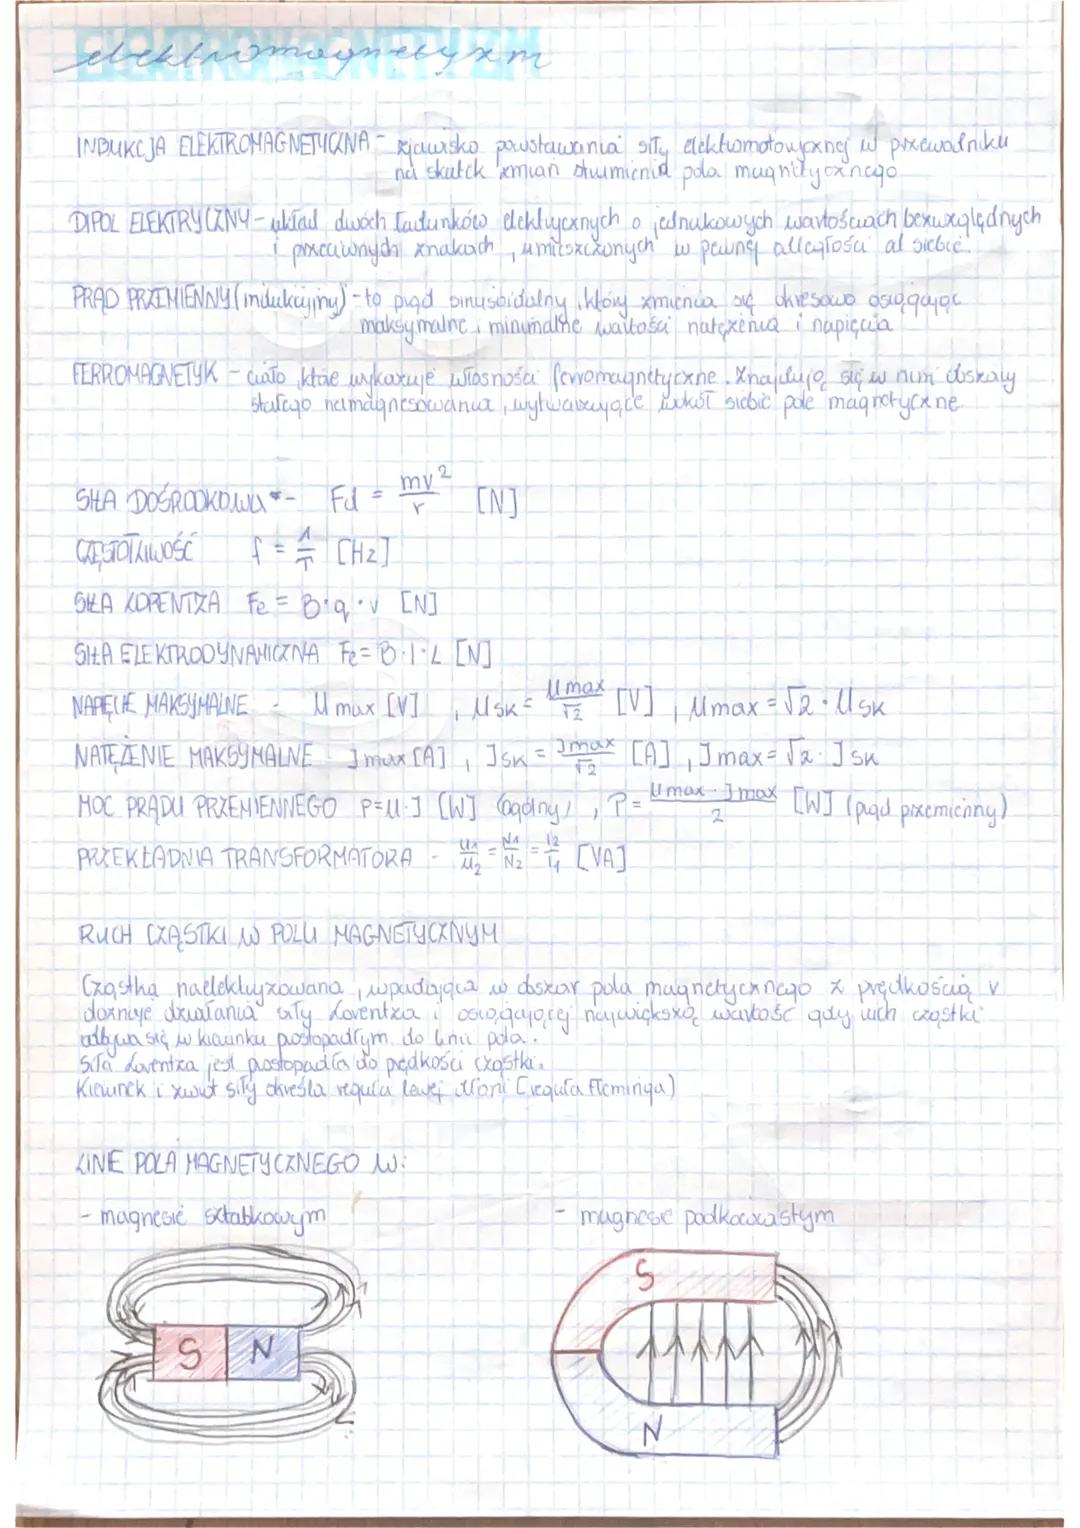 elektromagnetyzm
INDUKCJA ELEKTROMAGNETYCZNA - zjawisko powstawania siły elektromotorycznej w przewodniku
na skutek zmian strumienia pola magnetycznego
DIPOL ELEKTRYCZNY - układ dwóch ładunków elektrycznych o jednakowych wartościach bezwzględnych
i przeciwnych znakach, umieszczonych w pewnej odległości od siebie.
PRĄD PRZEMIENNY (indukcyjny) - to prąd sinusoidalny, który zmienia się okresowo osiągając
maksymalne i minimalne wartości natężenia i napięcia
FERROMAGNETYK - ciało, które wykazuje własności ferromagnetyczne. Znajdują się w nim obszary
stałego namagnesowania, wytwarzające wokół siebie pole magnetyczne.
SIŁA DOŚRODKOWA - Fd = mv²/r [N]
CZĘSTOTLIWOŚĆ f = 1/T [Hz]
SIŁA LORENTZA Fe = B·q·v [N]
SIŁA ELEKTRODYNAMICZNA Fe = B·I·L [N]
NAPIĘCIE MAKSYMALNE - Umax [V], Usk = Umax/√2 [V], Umax = √2 · Usk
NATĘŻENIE MAKSYMALNE Imax [A], Isk = Imax/√2 [A], Imax = √2 · Isk
MOC PRĄDU PRZEMIENNEGO P=U·I [W] (ogólny), P = Umax · Imax/2 [W] (prąd przemienny)
PRZEKŁADNIA TRANSFORMATORA - U1/U2 = N1/N2 = I2/I1 [VA]
RUCH CZĄSTKI W POLU MAGNETYCZNYM
Cząstka naelektryzowana, wpadająca w obszar pola magnetycznego z prędkością v
doznaje działania siły Lorentza i osiągającej największą wartość gdy ruch cząstki
odbywa się w kierunku prostopadłym do linii pola.
Siła Lorentza jest prostopadła do prędkości cząstki.
Kierunek i zwrot siły określa reguła lewej dłoni (reguła Fleminga)
LINIE POLA MAGNETYCZNEGO W:
- magnesie sztabkowym - magnesie podkowiastym
S N
S
N